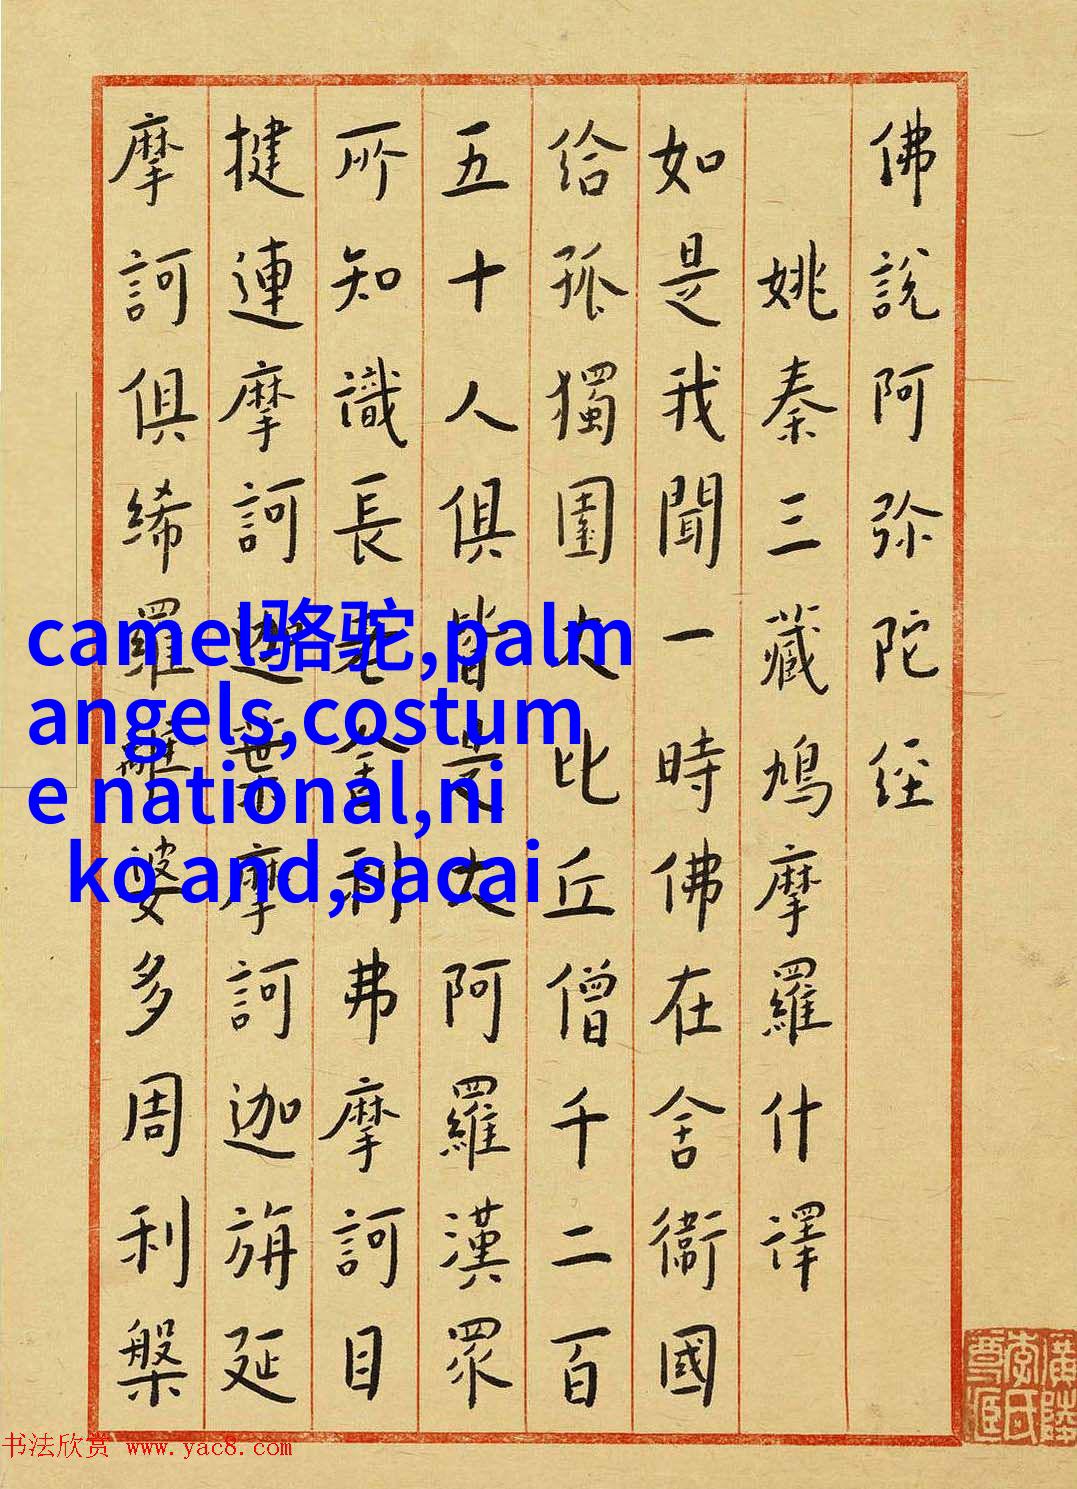 佛說阿弥陀經
姚秦三藏鳩摩羅什譯
如是我聞一時佛在舍衞國
給孤獨園大比丘僧千二百
五十人俱皆是大阿羅漢眾
所知識長老舍利弗摩訶目
揵連摩訶迦葉摩訶迦旃延
摩訶俱絺羅離婆多周利槃
camel骆驼,palm
angels,costum
e national,ni
ko and,sacai
书法欣赏 www.yac8.com